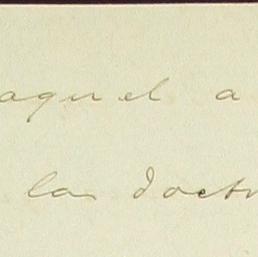 aquel a
la doctr